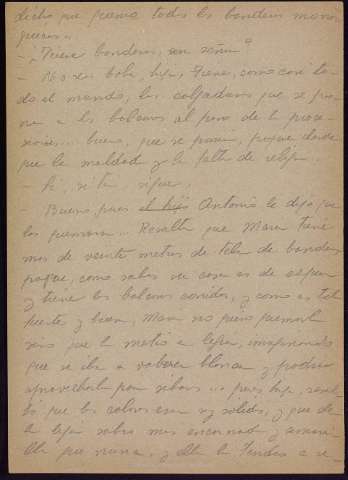 dicho que quema todos los banderas monar
quicas..
- ¿Tiene banderas, ese señor?
- No seas boba, hija, tiene, como casi to
do el mundo, las colgaduras que se po
ne a los balcones al paso de la proce
siones... bueno, que se ponían, porque desde
que la maldad y la falta de religi..
- Sí, sí tía, sigue.
- Bueno, pues el hijo Antonio le dijo que
los quemara... Resulta que Mara tiene
mas de veinte metros de tela de bandera
porque, como sabes su casa es de esquina
y tiene los balcones corridos, y como es tela
fuerte y buena, Mara no quiso quemarla
sino que la metió a lejía, imaginando
que se iba a volver blanca y podría
aprovecharla para sábanas... pues hija, resul
tó que los colores eran muy sólidos, y que de
la lejía salió mas encarnada y amari
lla que nunca, y ella la tendió a se